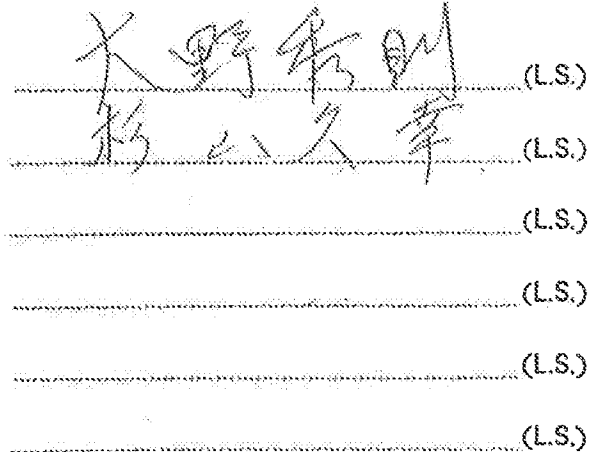 大野秀則 (L.S.)
杉山久幸 (L.S.)
(L.S.)
(L.S.)
(L.S.)
(L.S.)